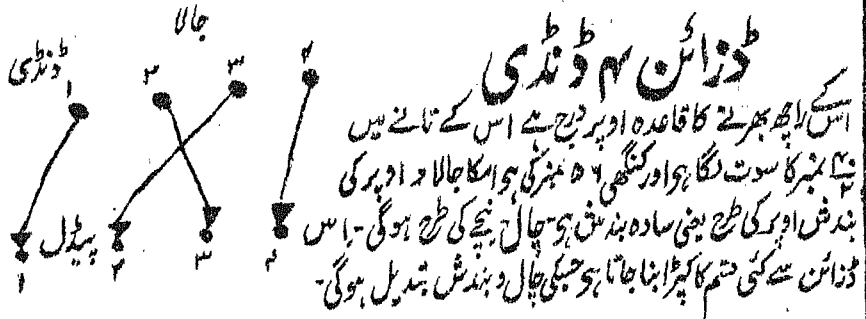 ڈزائن ۴ ڈنڈی
اس کے راچھ بھرنے کا قاعدہ اوپر درج ہے اس کے تانے میں
۴۰/۲ نمبر کا سوت لگا ہو اور کنگھی ۵۶ نمبر کی ہو اسکا جالا اوپر کی
بندش اوپر کی طرح یعنی سادہ بندش ہو۔ چال نیچے کی طرح ہوگی۔ اس
ڈزائن سے کئی قسم کا کپڑا بنا جاتا ہو جسکی چال و بندش تبدیل ہوگی۔
جالا
ڈنڈی
۱ ۲ ۳ ۴
پیڈل
۱ ۲ ۳ ۴